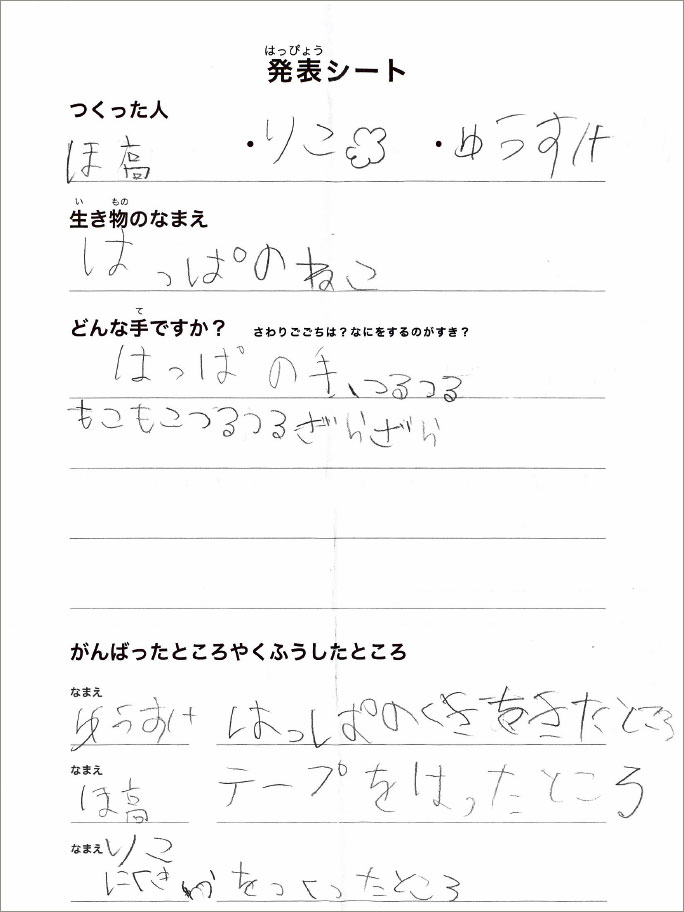 はっぴょう
発表シート
つくった人
ほ高 ・りこ ・ゆうすけ
い もの
生き物のなまえ
はっぱのねこ
て
どんな手ですか? さわりごごちは?なにをするのがすき?
はっぱの手、つるつる
もこもこつるつるざらざら
がんばったところやくふうしたところ
なまえ
ゆうすけ はっぱのくきをきたところ
なまえ
ほ高 テープをはったところ
なまえ りこ
をつくったところ